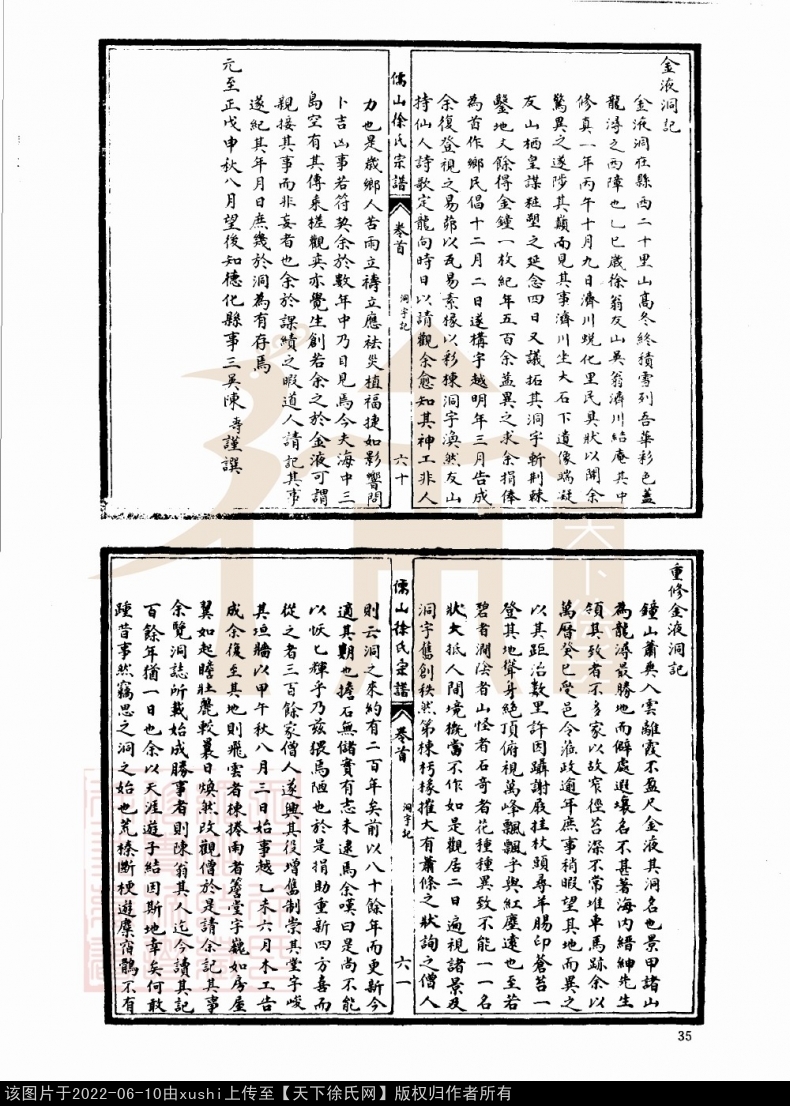 金液洞記
金液洞在縣西二十里山高冬終積雪列吾華彩色蓋
龍潯之西障也乙巳歲徐翁友山吳翁濟川結庵其中
修真一年丙午十月九日濟川蛻化里民具狀以聞余
驚異之遂陟其巔而見其事濟川坐大石下遺像端凝
友山栖皇謀粧塑之延念四日又議拓其洞宇斬荆棘
鑿地丈餘得金鐘一枚紀年五百余益異之求余捐俸
為首作鄉民倡十二月二日遂構宇越明年三月告成
余復登視之易茆以瓦易素椽以彩棟洞宇渙然友山
持仙人詩歌定龍向時日以請觀余愈知其神工非人
儒山徐氏宗譜
卷首
洞宇記
六十
力也是歲鄉人苦雨立禱立應祛災植福捷如影響問
卜吉凶事若符契余於數年中乃目見焉今夫海中三
島空有其傳乘槎觀奕亦覺生創若余之於金液可謂
親接其事而非妄者也余於課績之暇道人請記其事
遂紀其年月日庶幾於洞為有存焉
元至正戊申秋八月望後知德化縣事三吳陳 謹譔
重修金液洞記
鐘山蕭奥入雲離霞不盈尺金液其洞名也景甲諸山
為龍潯最勝地而僻處遐壤名不甚著海內縉紳先生
領其致者不多家以故窄徑苔深不常堆車馬跡余以
萬曆癸巳受邑令 政逾年庶事稍暇望其地而異之
以其距治數里許因躡謝屐挂杖頭尋羊腸印蒼苔一
登其地聳身絕頂俯視萬峰飄飄乎與紅塵遠也至若
碧者澗陰者山怪者石奇者花種種異致不能一一名
狀大抵人間境概當不作如是觀居二日遍視諸景及
洞宇舊創秩然第棟朽椽摧大有蕭條之狀詢之僧人
儒山徐氏宗譜
卷首
洞宇記
六一
則云洞之來約有二百年矣前以八十餘年而更新今
適其期也擔石無儲實有志未逮焉余嘆曰是尚不能
以恢匕輝乎乃兹猥焉陋也於是捐助重新四方喜而
從之者三百餘家僧人遂興其役增舊制崇其堂宇峻
其垣牆以甲午秋八月三日始事越乙未六月木工告
成余復至其地則飛雲者棟捲雨者簷堂宇觀如房屋
翼如起瞻壯麗較曩日煥然改觀僧於是請余記其事
余覽洞誌所載始成勝事者則陳翁其人迄今讀其記
百餘年猶一日也余以天涯遊子結因斯地幸矣何敢
踵昔事然竊思之洞之始也荒榛斷梗遊麋宿鶻不有
35
该图片于2022-06-10由xushi上传至【天下徐氏网】版权归作者所有